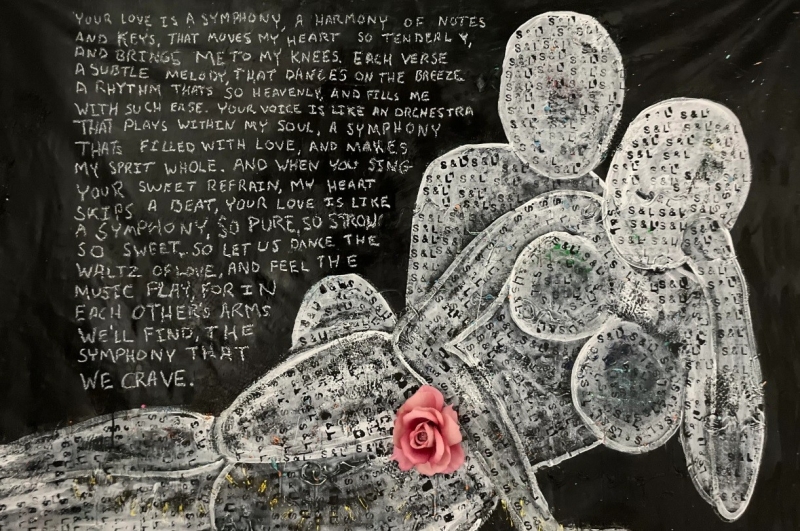 YOUR LOVE IS A SYMPHONY, A HARMONY OF NOTES
AND KEYS, THAT MOVES MY HEART SO TENDERLY,
AND BRINGS ME TO MY KNEES. EACH VERSE
A SUBTLE MELODY, THAT DANCES ON THE BREEZE.
A RHYTHM THATS SO HEAVENLY, AND FILLS ME
WITH SUCH EASE. YOUR VOICE IS LIKE AN ORCHESTRA
THAT PLAYS WITHIN MY SOUL, A SYMPHONY
THATS FILLED WITH LOVE, AND MAKES
MY SPRIT WHOLE. AND WHEN YOU SING
YOUR SWEET REFRAIN, MY HEART
SKIPS A BEAT, YOUR LOVE IS LIKE
A SYMPHONY, SO PURE, SO STRONG
SO SWEET. SO LET US DANCE THE
WALTZ OF LOVE, AND FEEL THE
MUSIC PLAY, FOR IN
EACH OTHER'S ARMS
WE'LL FIND, THE
SYMPHONY THAT
WE CRAVE.
S&L